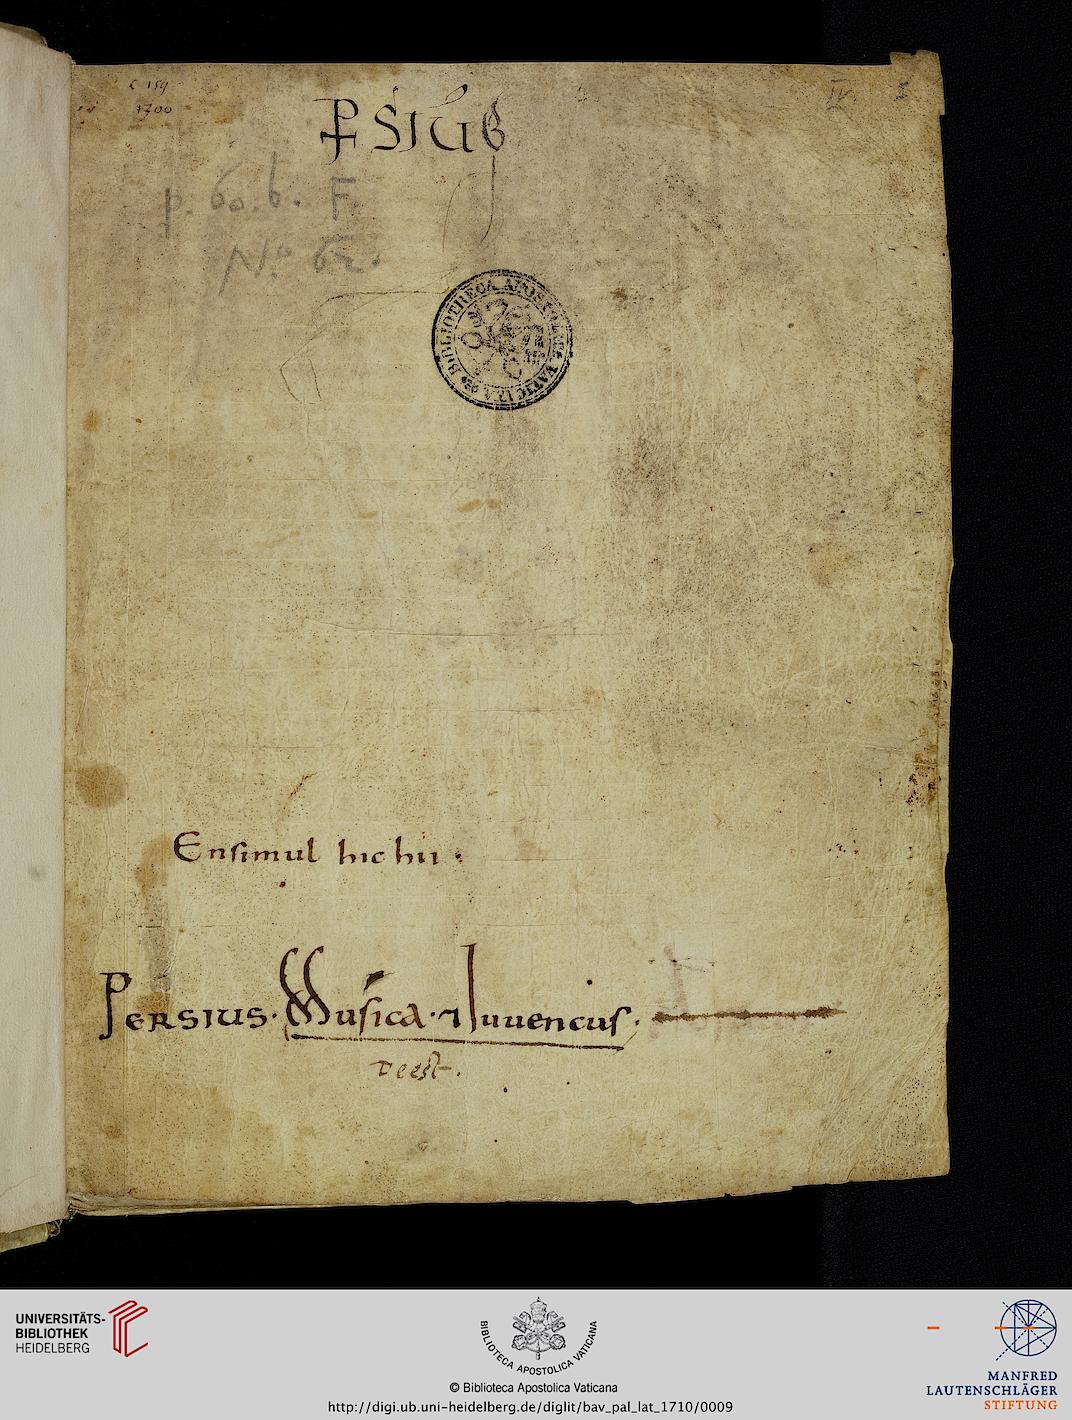 C 159
1700
IV. I
ꝑSIUS
p. 60. b. F.
N.º 62.
BIBLIOTHECA APOSTOLICA VATICANA
Ensimul hic hii
PERSIUS· Musica·⁊ Iuuencus·
Deest.
UNIVERSITÄTS-
BIBLIOTHEK
HEIDELBERG
BIBLIOTECA APOSTOLICA VATICANA
© Biblioteca Apostolica Vaticana
http://digi.ub.uni-heidelberg.de/diglit/bav_pal_lat_1710/0009
MANFRED
LAUTENSCHLÄGER
STIFTUNG